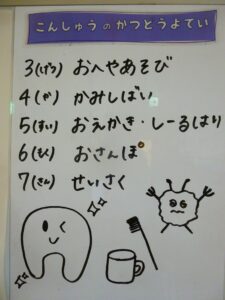 こんしゅうのかつどうよてい
3(げつ) おへやあそび
4(か) かみしばい
5(すい) おえかき・しーるはり
6(もく) おさんぽ
7(きん) せいさく